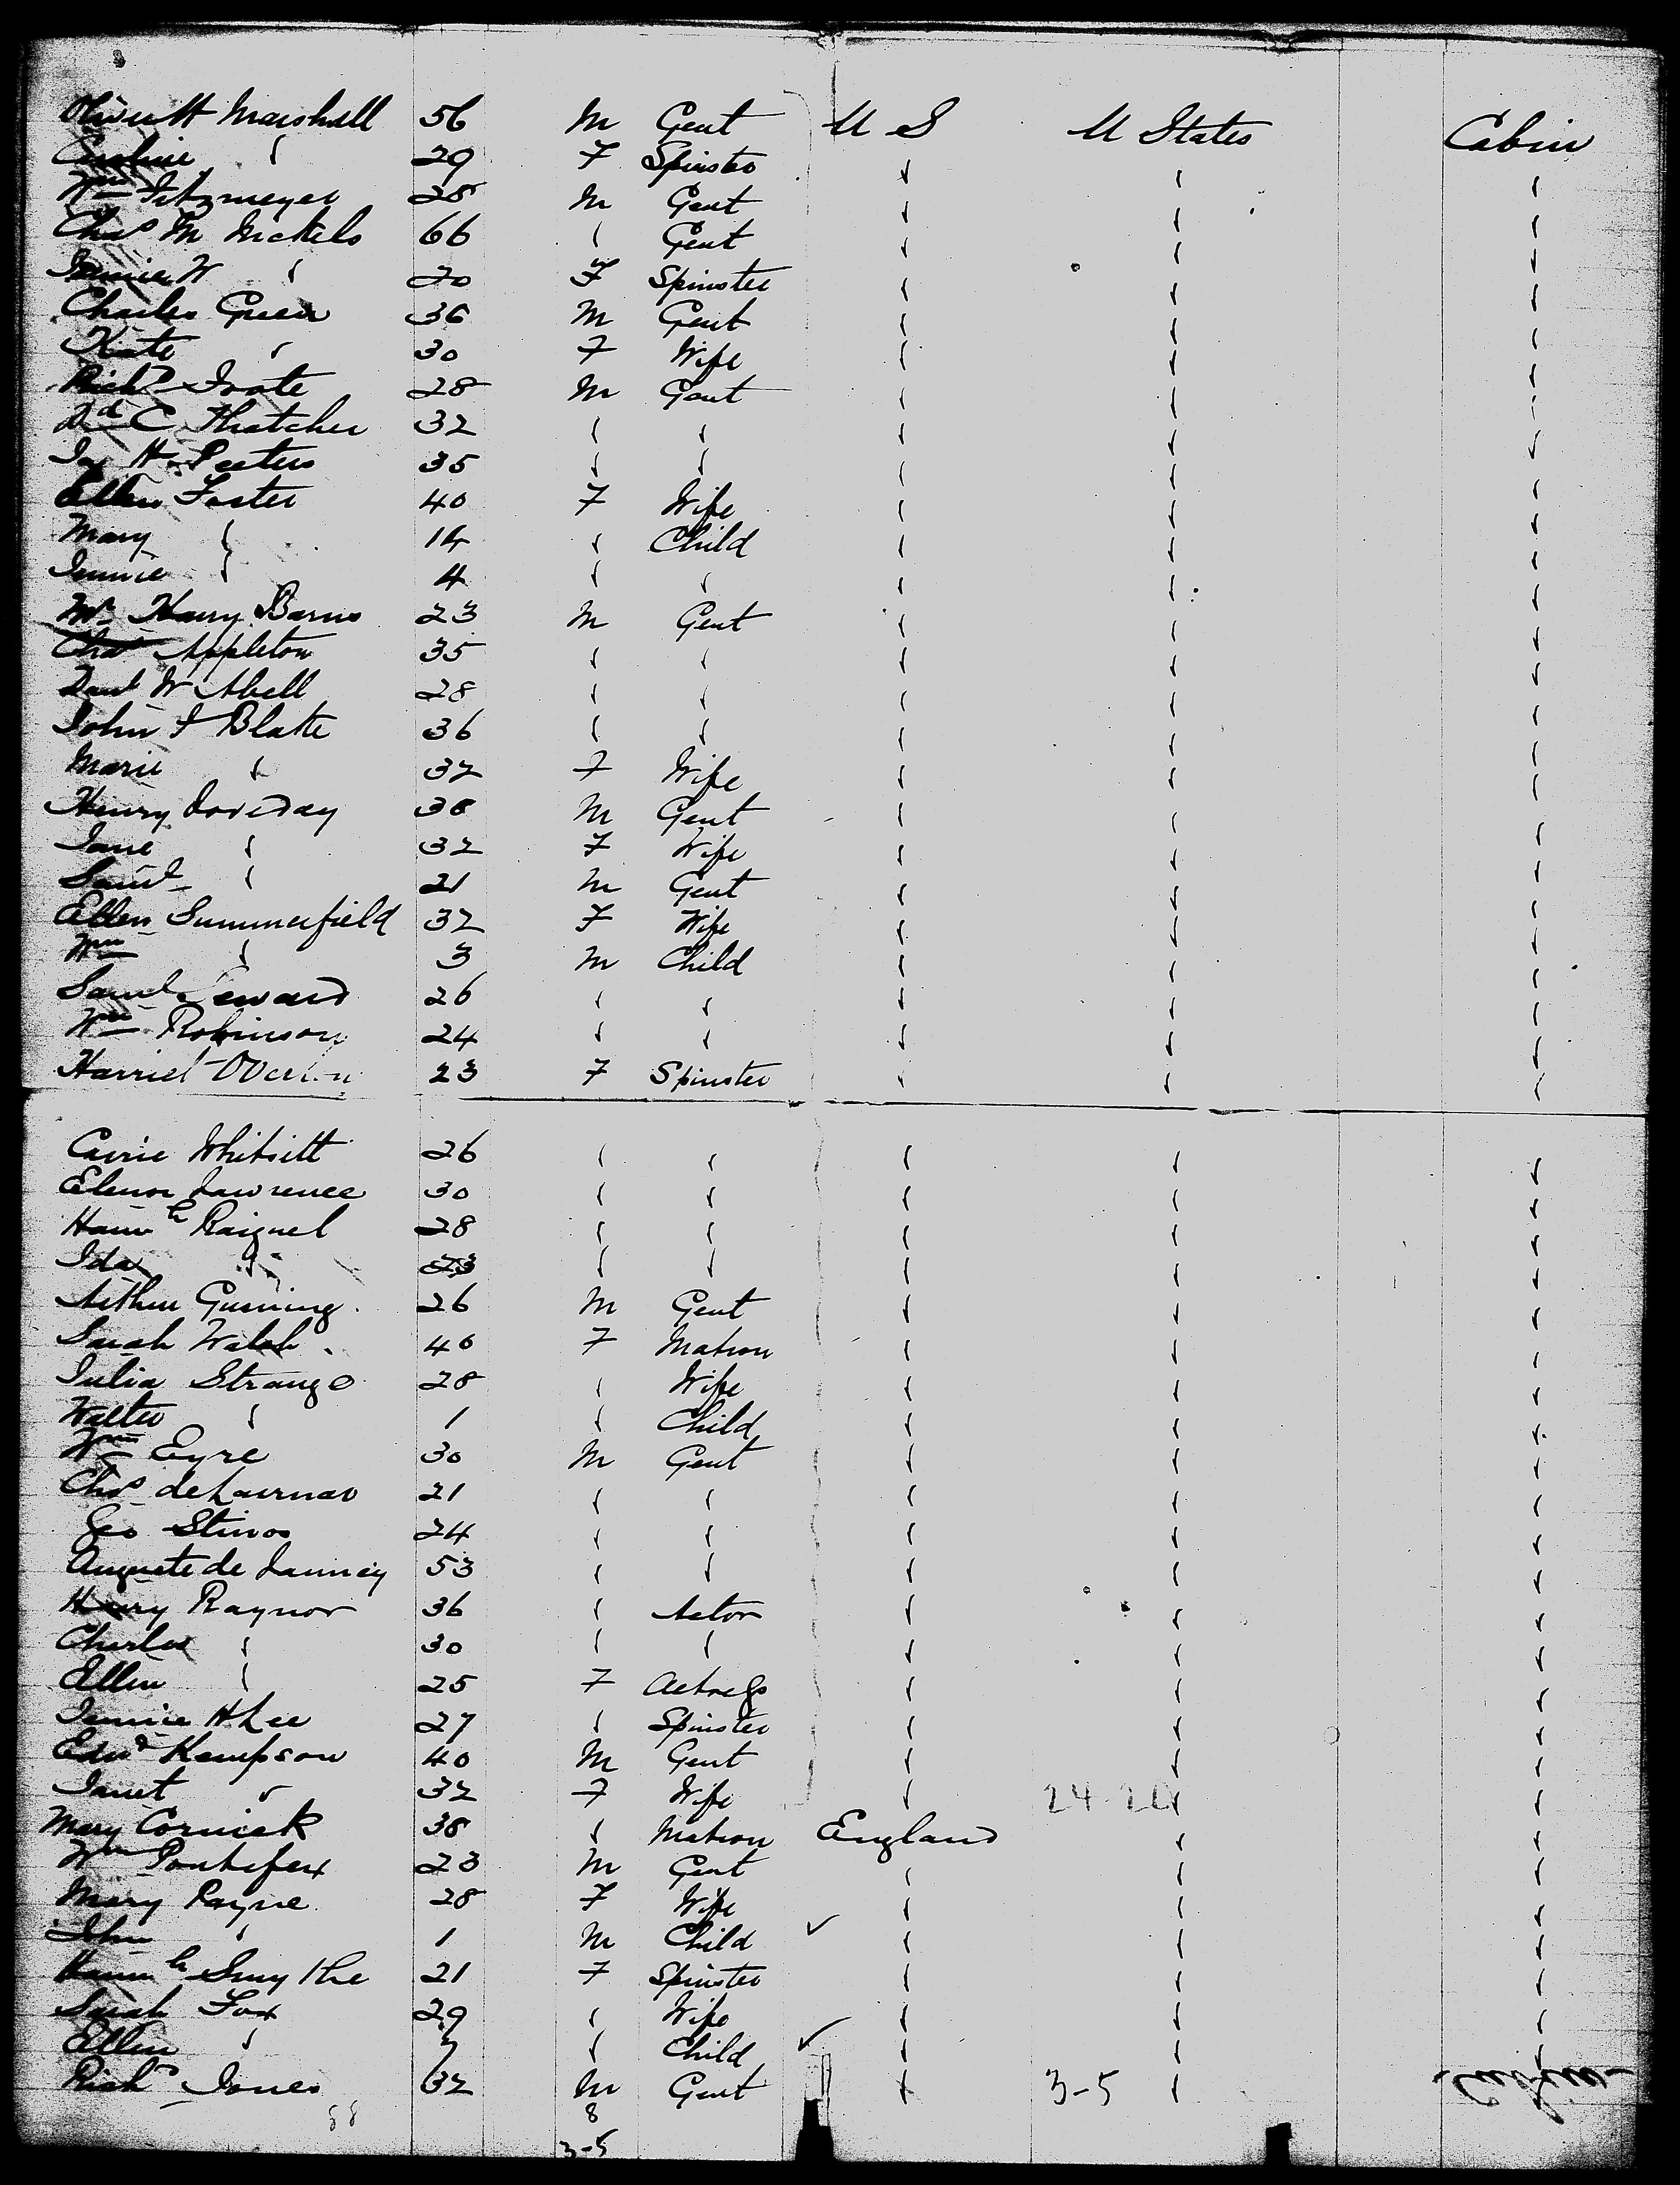 Oliver H Marshall 56 M Gent U S U States Cabin
Caroline " 29 F Spinster " " "
Wm Fitzmeyer 28 M Gent " " "
Chas M Nickels 66 " Gent " " "
Jennie W " 20 F Spinster " " "
Charles Green 36 M Gent " " "
Kate " 30 F Wife " " "
Richd 28 M Gent " " "
C Thatcher 32 " " " " "
Jas H Peeters 35 " " " " "
Ellen Foster 40 F Wife " " "
Mary " 14 " Child " " "
Jennie " 4 " " " " "
Mr Harry Barns 23 M Gent " " "
Chas Appleton 35 " " " " "
Danl W Abell 28 " " " " "
John F Blake 36 " " " " "
Marie " 32 F Wife " " "
Henry Loveday 38 M Gent " " "
Jane " 32 F Wife " " "
Saml " 21 M Gent " " "
Ellen Summerfield 32 F Wife " " "
Wm " 3 M Child " " "
Saml Seward 26 " " " " "
Wm Robinson 24 " " " " "
Harriet Overton 23 F Spinster " " "
Carrie Whitsitt 26 " " " " "
Elenor Lawrence 30 " " " " "
Hannh Raignel 28 " " " " "
Ida " 23 " " " " "
Arthur Gunning 26 M Gent " " "
Sarah Walsh 40 F Matron " " "
Julia Strange 28 " Wife " " "
Walter " 1 " Child " " "
Wm Eyre 30 M Gent " " "
Chas 21 " " " " "
Geo 24 " " " " "
Auguste de 53 " " " " "
Harry Raynor 36 " Actor " " "
Charles " 30 " " " " "
Ellen " 25 F Actress " " "
Jennie H Lee 27 " Spinster " " "
Edwd Kempson 40 M Gent " " "
Janet " 32 F Wife " 24-20 " "
Mary Cornick 38 " Matron England " "
Wm Pontifex 23 M Gent " " "
Mary Payne 28 F Wife " " "
John " 1 M Child ✓ " " "
Hannh Smythe 21 F Spinster " " "
Sarah Fox 29 " Wife " " "
Ellen " 7 " Child ✓ " " "
Richd Jones 32 M Gent " 3-5 " Cabin
58 8
3-5